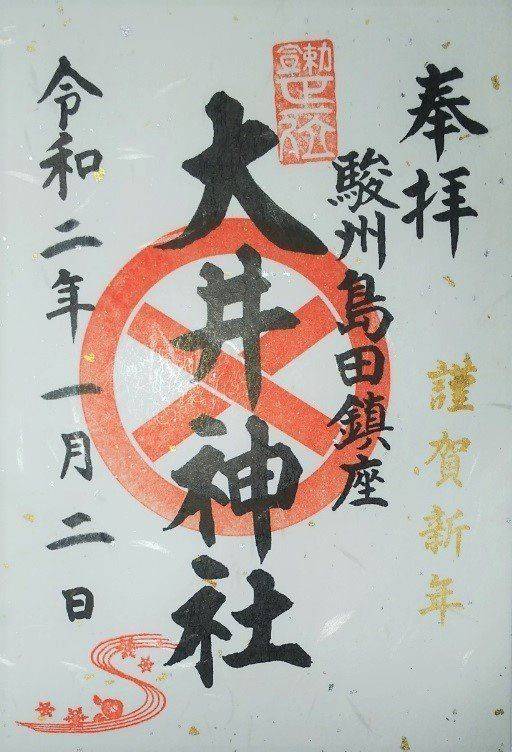 奉拝
謹賀新年
駿州島田鎮座
大井神社
令和二年一月二日